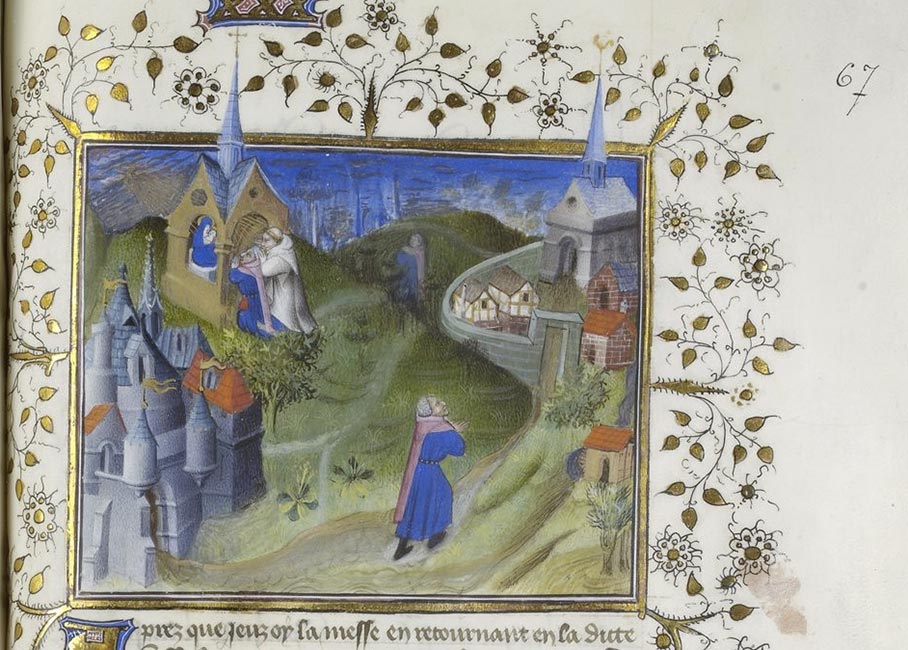 67
prez que jeuz oy la messe en retournant en la dicte